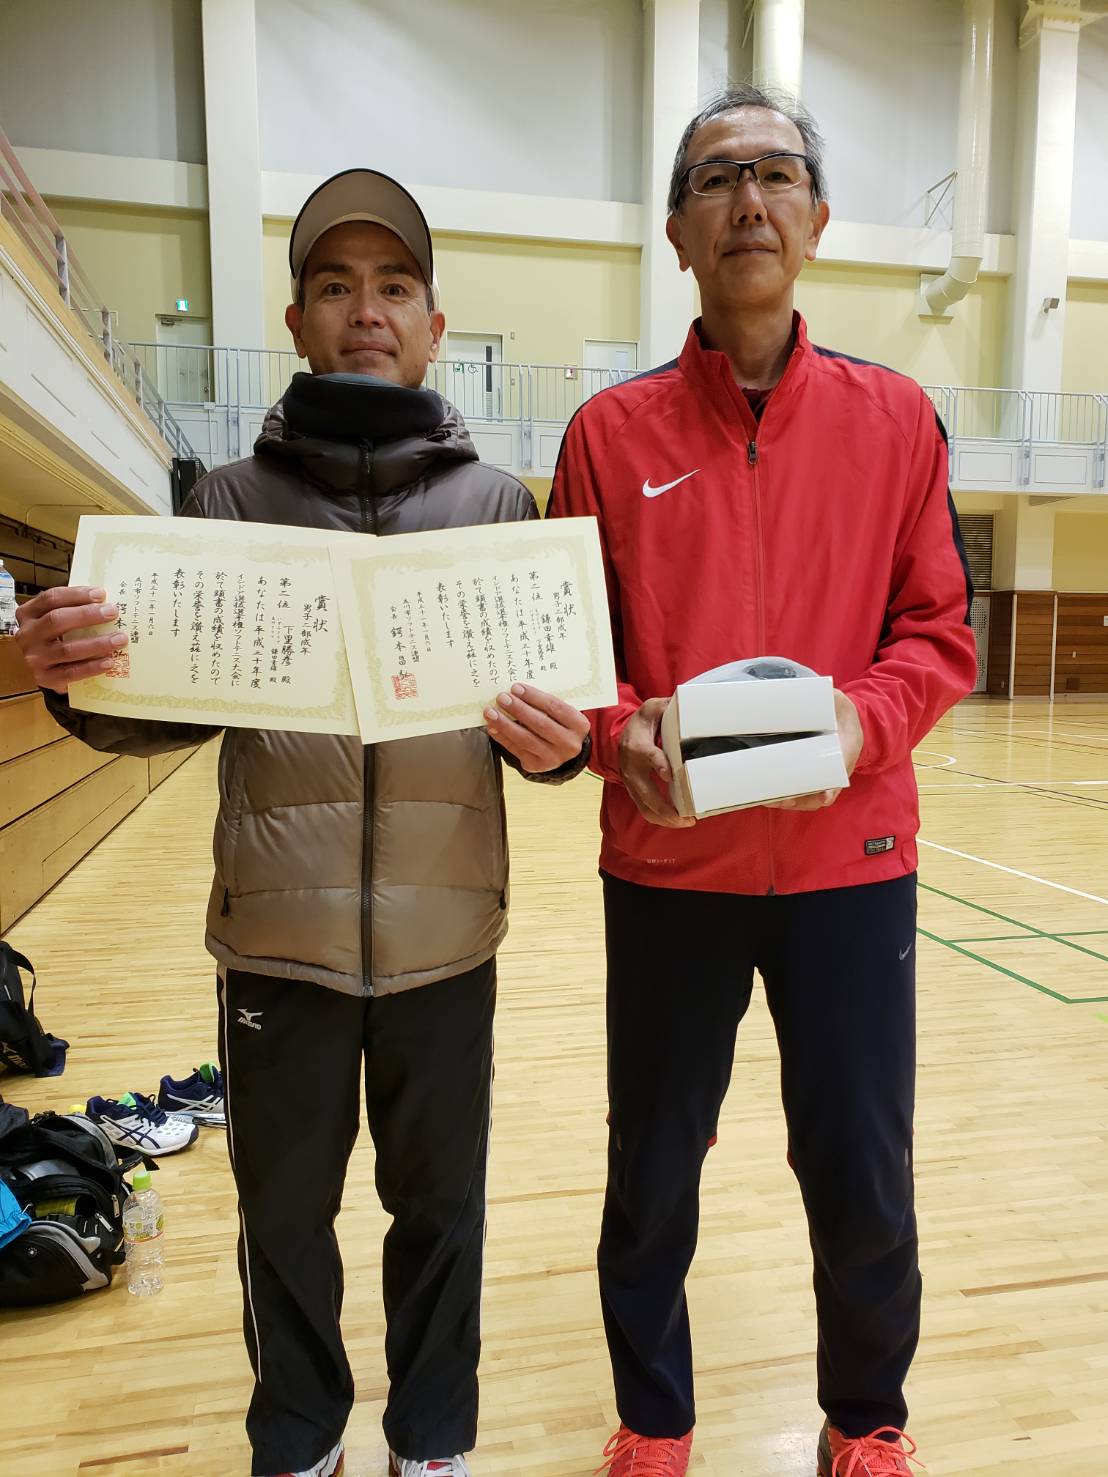 賞状
男子二部成年
第二位
下里勝彦 殿
鎌田幸雄 殿
あなたは平成三十年度
インドア選抜選手権ソフトテニス大会に
於て頭書の成績を収めたので
その栄誉を讃え茲に之を
表彰いたします
平成三十一年一月六日
立川市ソフトテニス連盟
会長
賞状
男子二部成年
第二位
鎌田幸雄 殿
殿
あなたは平成三十年度
インドア選抜選手権ソフトテニス大会に
於て頭書の成績を収めたので
その栄誉を讃え茲に之を
表彰いたします
平成三十一年一月六日
立川市ソフトテニス連盟
会長
MIZUNO
DRI-FIT